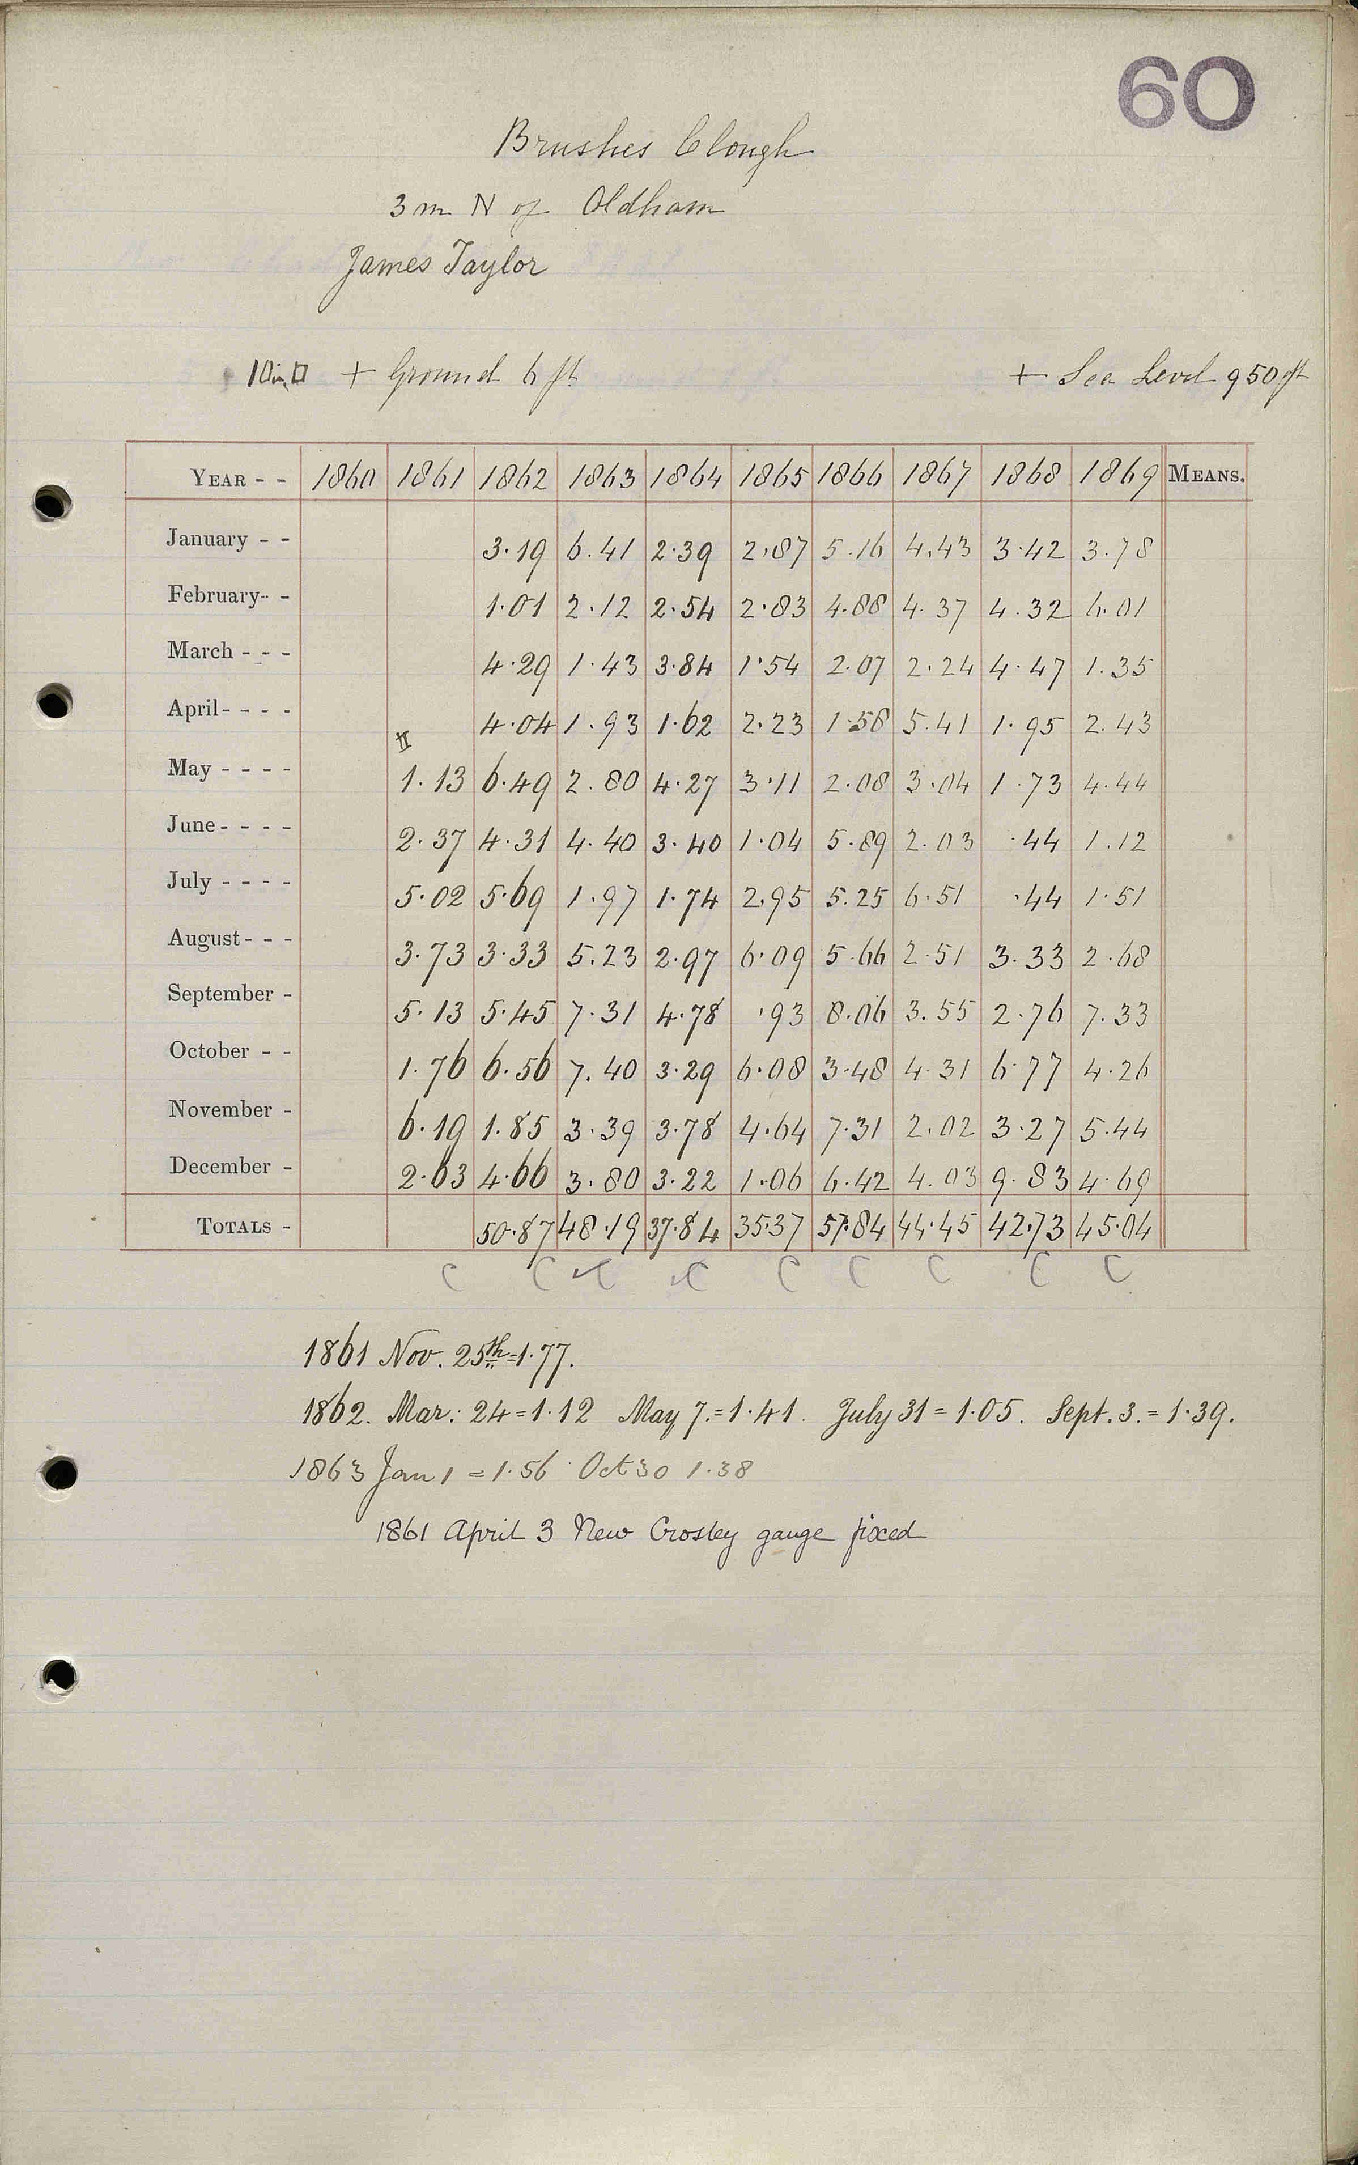 60
Brushes Clough
3 m N of Oldham
James Taylor
10 in □ + Ground 6 ft + Sea Level 950 ft
YEAR - - 1860 1861 1862 1863 1864 1865 1866 1867 1868 1869 MEANS.
January - - 3.19 6.41 2.39 2.87 5.16 4.43 3.42 3.78
February- - 1.01 2.12 2.54 2.83 4.88 4.37 4.32 6.01
March - - - 4.29 1.43 3.84 1.54 2.07 2.24 4.47 1.35
April- - - - 4.04 1.93 1.62 2.23 1.58 5.41 1.95 2.43
May - - - - 1.13 6.49 2.80 4.27 3.11 2.08 3.04 1.73 4.44
June- - - - 2.37 4.31 4.40 3.40 1.04 5.89 2.03 .44 1.12
July - - - - 5.02 5.69 1.97 1.74 2.95 5.25 6.51 .44 1.51
August- - - 3.73 3.33 5.23 2.97 6.09 5.66 2.51 3.33 2.68
September - 5.13 5.45 7.31 4.78 .93 8.06 3.55 2.76 7.33
October - - 1.76 6.56 7.40 3.29 6.08 3.48 4.31 6.77 4.26
November - 6.19 1.85 3.39 3.78 4.64 7.31 2.02 3.27 5.44
December - 2.63 4.66 3.80 3.22 1.06 6.42 4.03 9.83 4.69
TOTALS - 50.87 48.19 37.84 35.37 57.84 44.45 42.73 45.04
C C ✓C ✓C C C C C C
1861 Nov. 25th = 1.77.
1862. Mar: 24 = 1.12 May 7. = 1.41. July 31 = 1.05. Sept. 3. = 1.39.
1863 Jan 1 = 1.56 Oct 30 1.38
1861 April 3 New Crosley gauge fixed